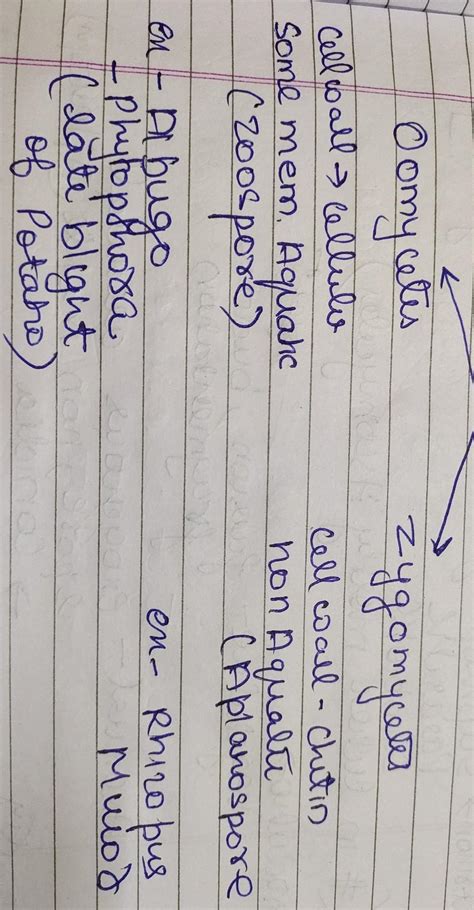 Oomycetes
cell wall → cellulo
Some mem. Aquatic
(zoospore)
en - Albugo
- Phytopthora
(late blight
of Potato)
Zygomycetes
cell wall - chitin
non Aquatic
(Aplanospore
en - Rhizopus
Mucor